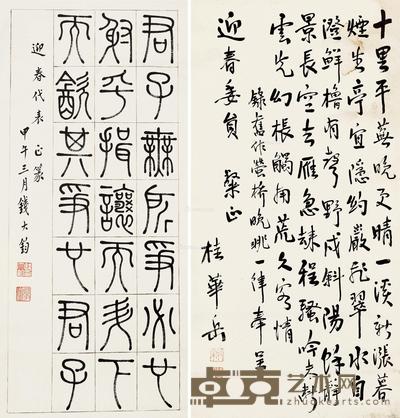 十里平蕪晚更晴一溪新漲暮
煙生亭宜隱約巖飛翠水自
澄鮮櫓有聲野戍斜陽餘靜
景長空去雁急歸程騷吟
雲光幻棖觸用荒久客情
錄舊作營橋晚眺一律奉呈
迎春委員 粲正
桂華岳
君子無所爭必也
射乎揖讓而升下
而飲其爭也君子
迎春代表正篆
甲午三月錢大鈞
卓克艺术网
zhuokearts.com